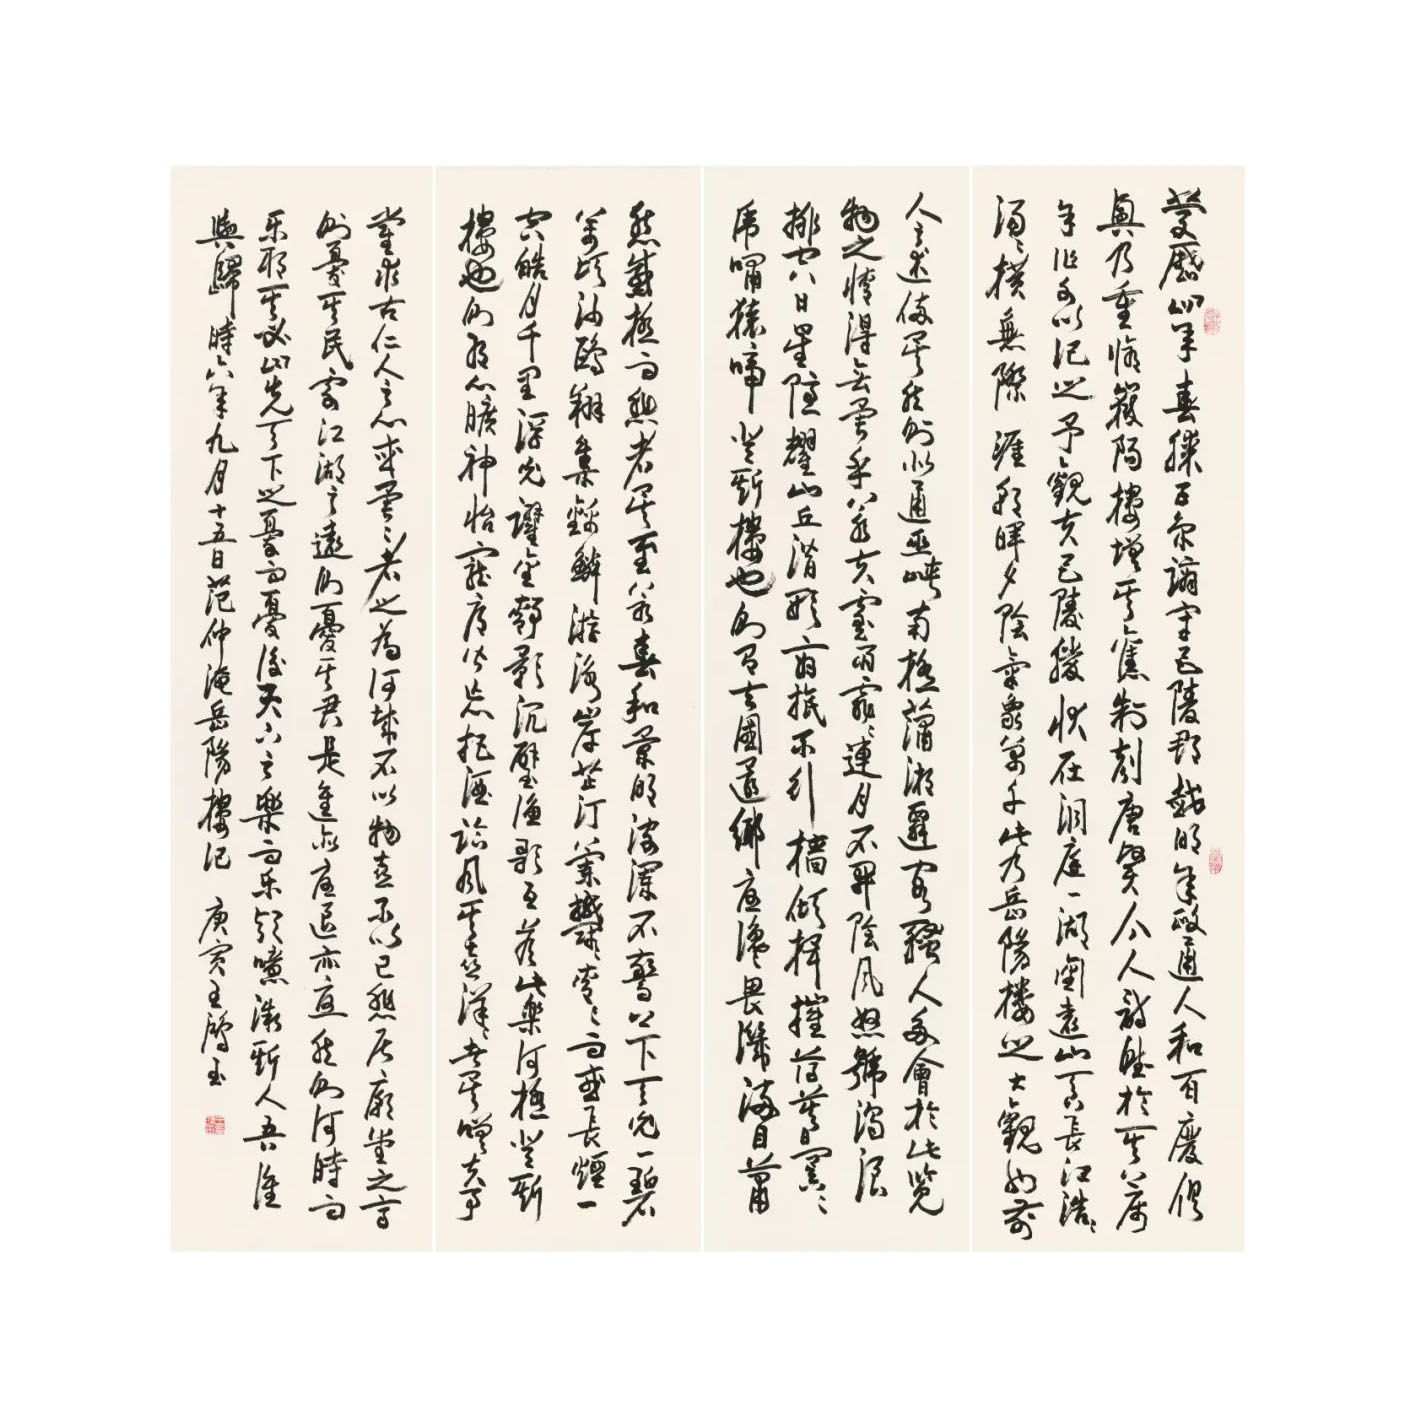 慶曆四年春滕子京謫守巴陵郡越明年政通人和百廢俱
興乃重脩嶽陽樓增其舊制刻唐賢今人詩賦於其上屬
予作文以記之予觀夫巴陵勝狀在洞庭一湖銜遠山吞長江浩浩
湯湯橫無際涯朝暉夕陰氣象萬千此乃岳陽樓之大觀也前
人之述備矣然則北通巫峽南極瀟湘遷客騷人多會於此覽
物之情得無異乎若夫霪雨霏霏連月不開陰風怒號濁浪
排空日星隱耀山丘潛形商旅不行檣傾楫摧薄暮冥冥
虎嘯猿啼登斯樓也則有去國還鄉憂讒畏譏滿目蕭
然感極而悲者矣至若春和景明波瀾不驚上下天光一碧
萬頃沙鷗翔集錦鱗游泳岸芷汀蘭鬱鬱青青而或長煙一
空皓月千里浮光躍金靜影沉璧漁歌互答此樂何極登斯
樓也則有心曠神怡寵辱皆忘把酒臨風其喜洋洋者矣嗟夫予
嘗求古仁人之心或異二者之為何哉不以物喜不以己悲居廟堂之高
則憂其民處江湖之遠則憂其君是進亦憂退亦憂然則何時而
乐耶其必曰先天下之憂而憂後天下之樂而乐歟噫微斯人吾誰
與歸時六年九月十五日范仲淹岳陽樓記 庚寅王